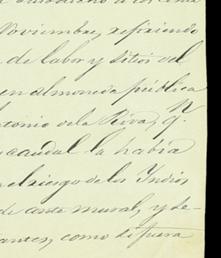 Noviembre, refiriendo
de labor y sitios del
en almoneda pública
tonio de la Riva, q.
caudal la había
el riesgo de los Yndios
de corte mural, y de-
antes, como si fuera